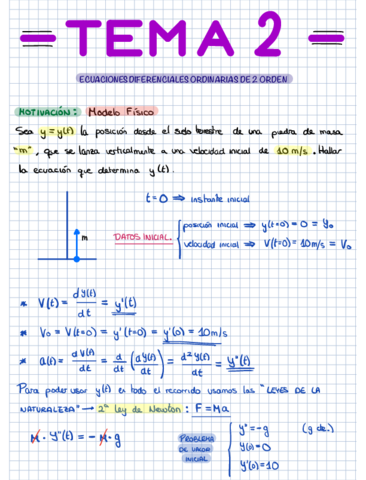 TEMA 2
ECUACIONES DIFERENCIALES ORDINARIAS DE 2 ORDEN
MOTIVACIÓN: Modelo Físico
Sea y = y(t) la posición desde el suelo terrestre de una piedra de masa
"m", que se lanza verticalmente a una velocidad inicial de 10 m/s. Hallar
la ecuación que determina y(t).
t=0 ⟹ instante inicial
m
DATOS INICIAL.
{ posición inicial ⟹ y(t=0) = 0 = y₀
velocidad inicial ⟹ V(t=0) = 10m/s = V₀
* V(t) = dy(t)/dt = y'(t)
* V₀ = V(t=0) = y'(t=0) = y'(0) = 10m/s
* a(t) = dV(t)/dt = d/dt (dy(t)/dt) = d²y(t)/dt = y''(t)
Para poder usar y(t) en todo el recorrido usamos las "LEYES DE LA
NATURALEZA" → 2ª ley de Newton: F = Ma
M · y''(t) = - M · g
PROBLEMA
DE VALOR
INICIAL
{ y'' = -g
y(0) = 0
y'(0) = 10